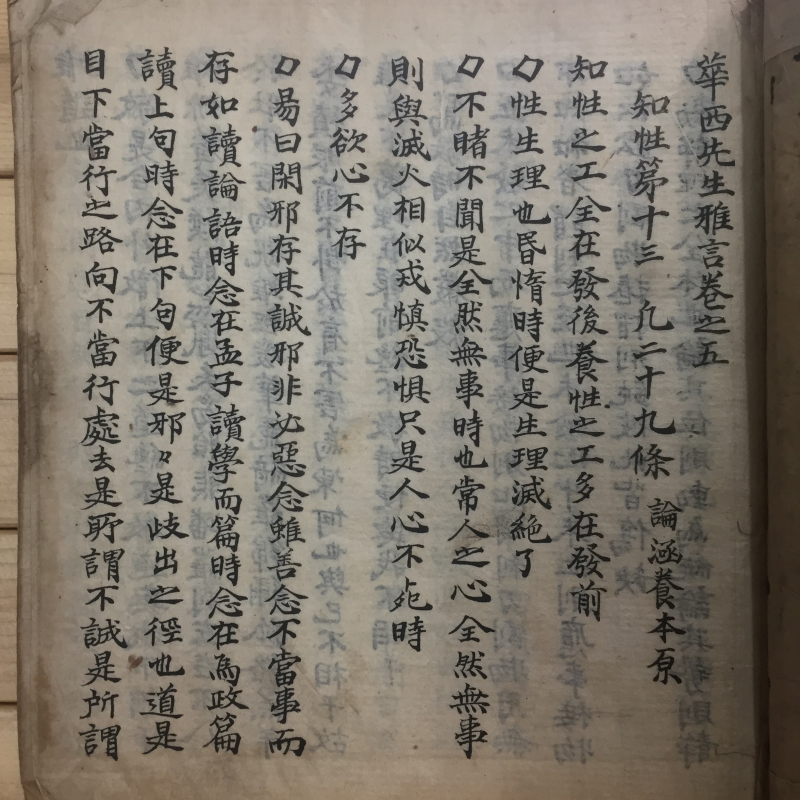 華西先生雅言卷之五
知性第十三 凢二十九條 論涵養本原
知性之工全在發後養性之工多在發前
性生理也昏惰時便是生理滅絶了
不睹不聞是全然無事時也常人之心全然無事
則與滅火相似戎慎恐惧只是人心不死時
多欲心不存
易曰閑邪存其誠邪非必惡念雖善念不當事而
存如讀論語時念在孟子讀學而篇時念在為政篇
讀上句時念在下句便是邪々是歧出之徑也道是
目下當行之路向不當行處去是所謂不誠是所謂